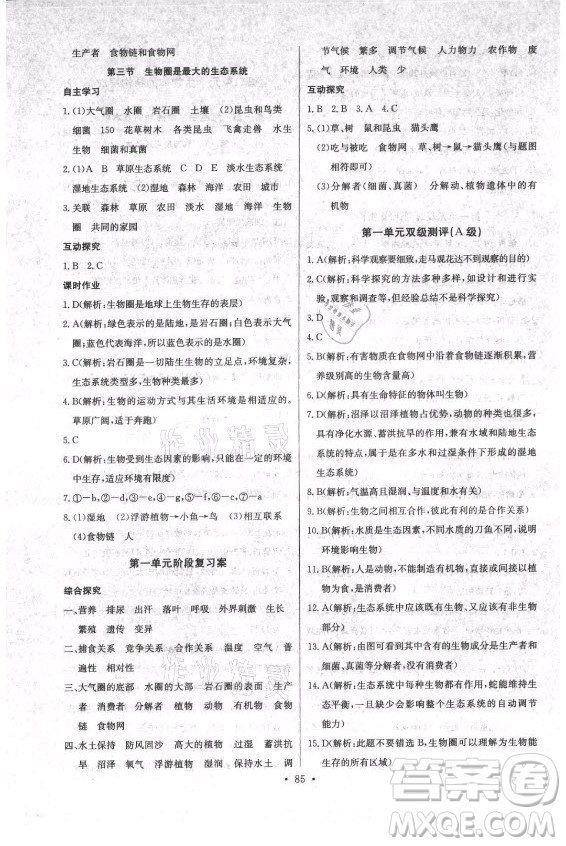 生产者 食物链和食物网
第三节 生物圈是最大的生态系统
自主学习
1.(1)大气圈 水圈 岩石圈 土壤 (2)鸟类 昆虫类
细菌 150 花草树木 各类昆虫 飞禽走兽 水生
生物 细菌和真菌
2.(1)A B 草原生态系统 C D E 淡水生态系统
湿地生态系统 (2)森林 海洋 农田 城市
3.关联 森林 草原 农田 淡水 湿地 海洋 生物
圈 共同的家园
互动探究
1.B 2.C
课时作业
1.D(解析:生物圈是地球上生物生存的表层)
2.A(解析:绿色表示的是陆地,是岩石圈。黄色表示大气
圈。蓝色表示水圈)
3.C(解析:岩石圈是一切陆生生物的立足点,环境复杂,
生态系统类型多,生物种类最多)
4.B(解析:生物的运动方式与其生活环境相适应的。
草原广阔,适于奔跑)
5.C
6.D(解析:生物受到生态因素的影响,只能在一定的环境
中生存。因此环境影响生物的分布)
7.①—b,②—d,③—c,④—e,⑤—g,⑥—f,⑦—a
8.(1)湿地 (2)浮游植物→小鱼→鸟 (3)相互联系
(4)食物链 人
第一单元阶段复习案
综合探究
一、营养 排尿 出汗 落叶 呼吸 外界刺激 生长
繁殖 遗传 变异
二、捕食关系 竞争关系 合作关系 温度 空气 普
遍性 相对性
三、大气圈的底部 水圈的大部 岩石圈的表面 生产
者 消费者 分解者 植物 动物 有机物 食物
链 食物网
四、水土保持 防风固沙 高大的植物 湿润 蓄洪抗
旱 沼泽 氧气 浮游植物 湿润 保持水土 调
节气候 繁多 调节气候 人力物力 农作物 废
气 环境 人类 少
互动探究
1.B 2.B 3.A 4.C
5.(1)草、树 鼠和昆虫 猫头鹰
(2)吃与被吃 食物网 草、树→鼠→猫头鹰(与题图
相符即可)
(3)分解者(细菌、真菌) 分解动物、植物遗体中的有
机物
第一单元双级测评(A级)
1.A(解析:科学观察要细致,走马观花达不到观察的目的)
2.B(解析:科学探究的方法多种多样,如设计并开展实
验,观察和调查等,但经验总结几乎不是科学探究)
3.D
4.C
5.B(解析:有害物质在食物网中沿食物链逐渐积累,营
养级别高的生物体内有毒物质多)
6.D(解析:具有生命特征的物体叫生物)
7.D(解析:沼泽以沼泽植物占优势,动物的种类也很多,
有净化水源、蓄洪抗旱的作用。兼有水域和陆地生态
系统的特点,因此沼泽生态系统是典型的湿地
生态系统)
8.B(解析:气温高且湿润、与干旱相反)
9.D
10.B(解析:水质是生态因素中的非生物因素)
11.B(解析:人是动物,不能制造有机物,只能消费有机
物,是消费者)
12.A(解析:生态系统中可以没有动物,即没有消费者)
13.A(解析:题图中可以看出该生态系统的成分是生产者和
细菌、真菌,没有消费者)
14.A(解析:草→鼠→蛇能够在一定范围内维持生
态平衡,但一个生态系统具有一定的自动调节
能力)
15.D(解析:此题不要错选B,生物圈包括了地球上所有
生态系统的生物和它们的环境,但不包括生态系统
的所有区域)
· 85 ·